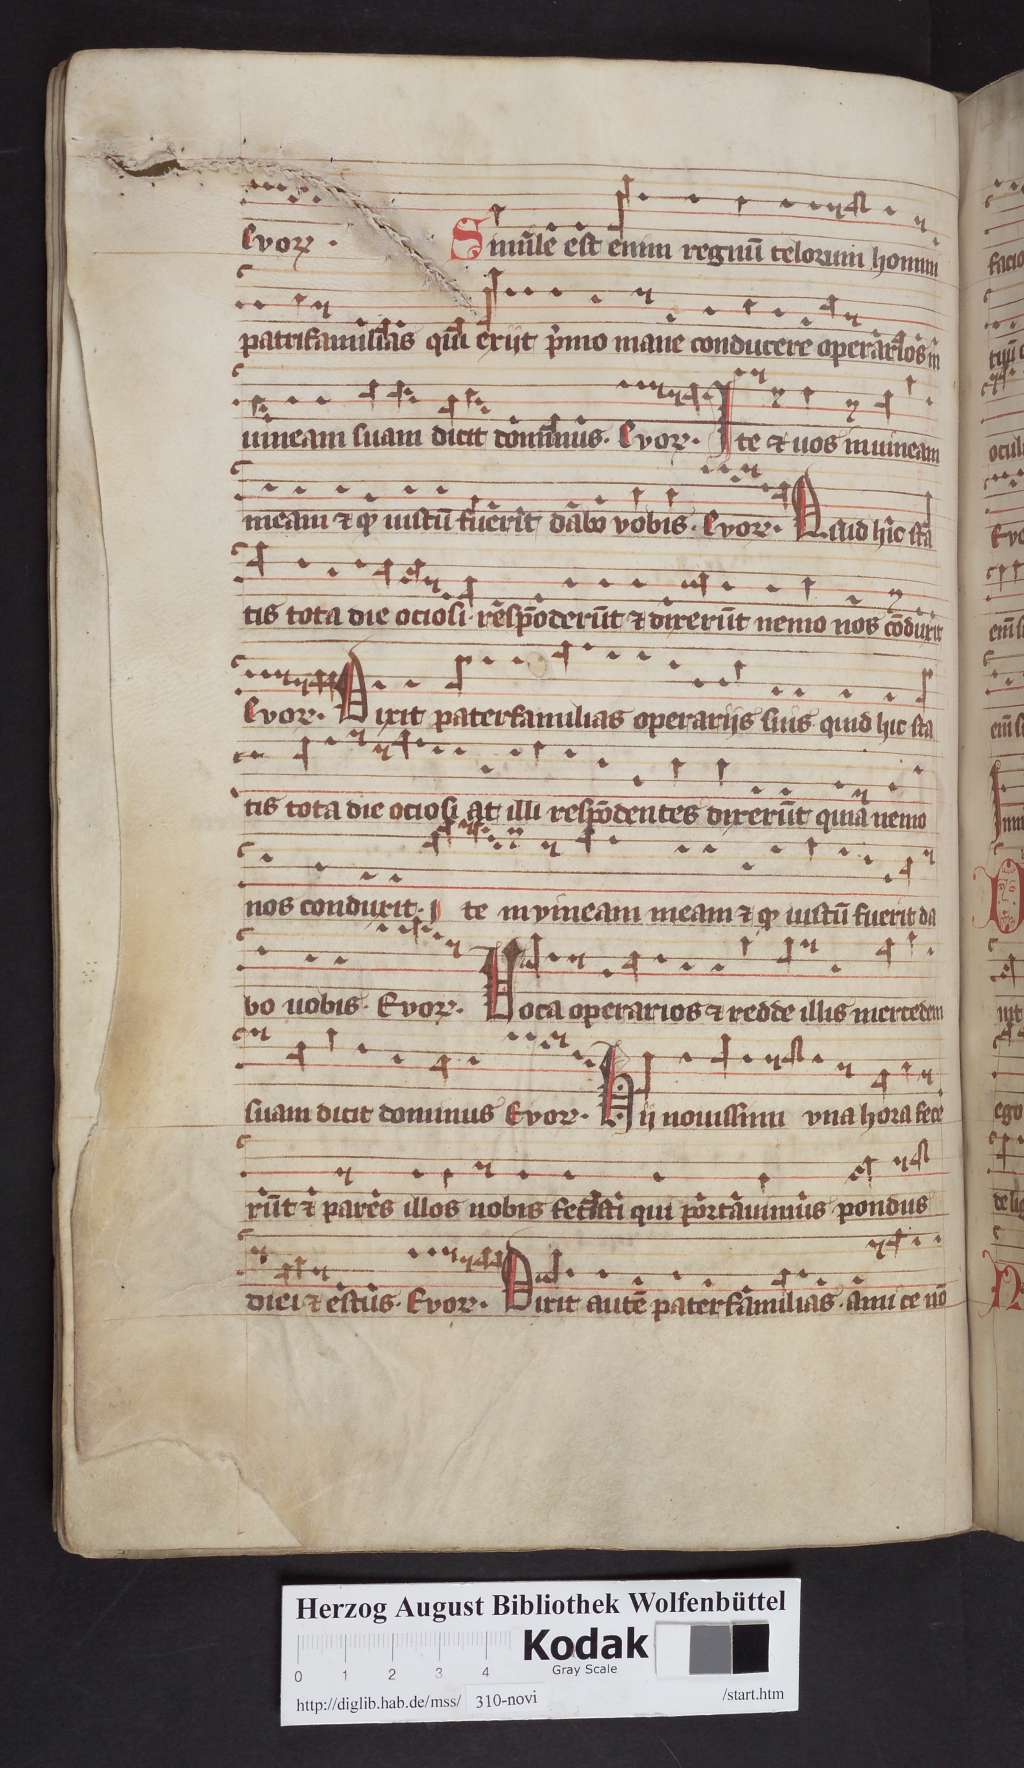 Evoꝝ. Simile est enim regnū celorum homini
patrifamilias qui exijt p̄mo mane conducere operarios in
uineam suam dicit dominus. Evoꝝ. Ite ⁊ uos in uineam
meam ⁊ qd iustū fuerit dabo vobis. Evoꝝ. Quid hic sta
tis tota die ociosi. respōderūt ⁊ dixerūt nemo nos cōduxit
Evoꝝ. Dixit paterfamilias operarijs suis quid hic sta
tis tota die ociosi at illi respōdentes dixerūt quia nemo
nos conduxit. Ite in vineam meam ⁊ qd iustū fuerit da
bo uobis. Evoꝝ. Voca operarios ⁊ redde illis mercedem
suam dicit dominus Evoꝝ. Hij nouissimi vna hora fece
rūt ⁊ pares illos nobis fecisti qui portauimus pondus
diei ⁊ estus. Evoꝝ. Dixit autē paterfamilias. amice nō
facio
oculi
Evo
ego
Herzog August Bibliothek Wolfenbüttel
Kodak
Gray Scale
0 1 2 3 4
http://diglib.hab.de/mss/ 310-novi /start.htm